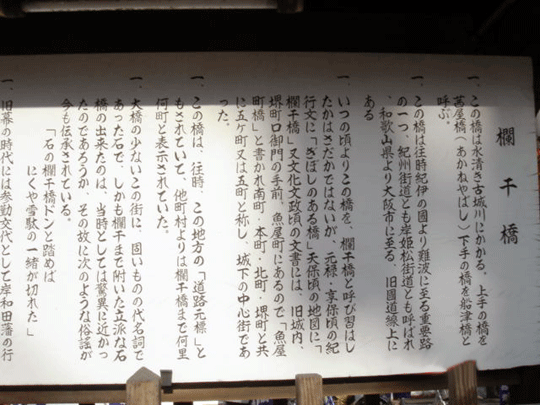 欄干橋
一、この橋は水清き古城川にかかる。上手の橋を
萬屋橋、（あかねやばし）下手の橋を船津橋と
呼ぶ。
一、この橋は往時紀伊の國より難波に至る重要路
の一つ、紀州街道とも岸姫松街道とも呼ばれ
、和歌山県より大阪市に至る、旧国道線上に
ある
一、いつの頃よりかこの橋を、欄干橋と呼び習はし
たかはさだかではないが、元禄・享保頃の紀
行文に「ぎぼしのある橋」天保頃の地図に「
欄干橋」又文化文政頃の文書には、旧城内、
堺町口御門の手前、魚屋町にあるので「魚屋
町橋」と書かれ南町・本町・北町・堺町と共
に五ヶ町又は五町と称し、城下の中心街であ
った。
一、この橋は、往時、この地方の「道路元標」と
もされていて、他町村よりは欄干橋まで何里
何町と表示されていた。
一、大橋の少ないこの街に、固いものの代名詞で
あった石で、しかも欄干まで附いた立派な石
橋の出来たのは、当時としては驚異に近かっ
たのであろうか、その故に次のような俗謡が
今も伝承されている。
「石の欄干橋ドンと踏めば
にくや雪駄の一緒が切れた」
一、旧幕の時代には参勤交代として岸和田藩の行